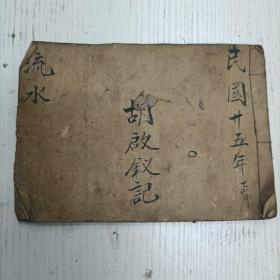 民國廿五年 正月
胡啟釵記
流水